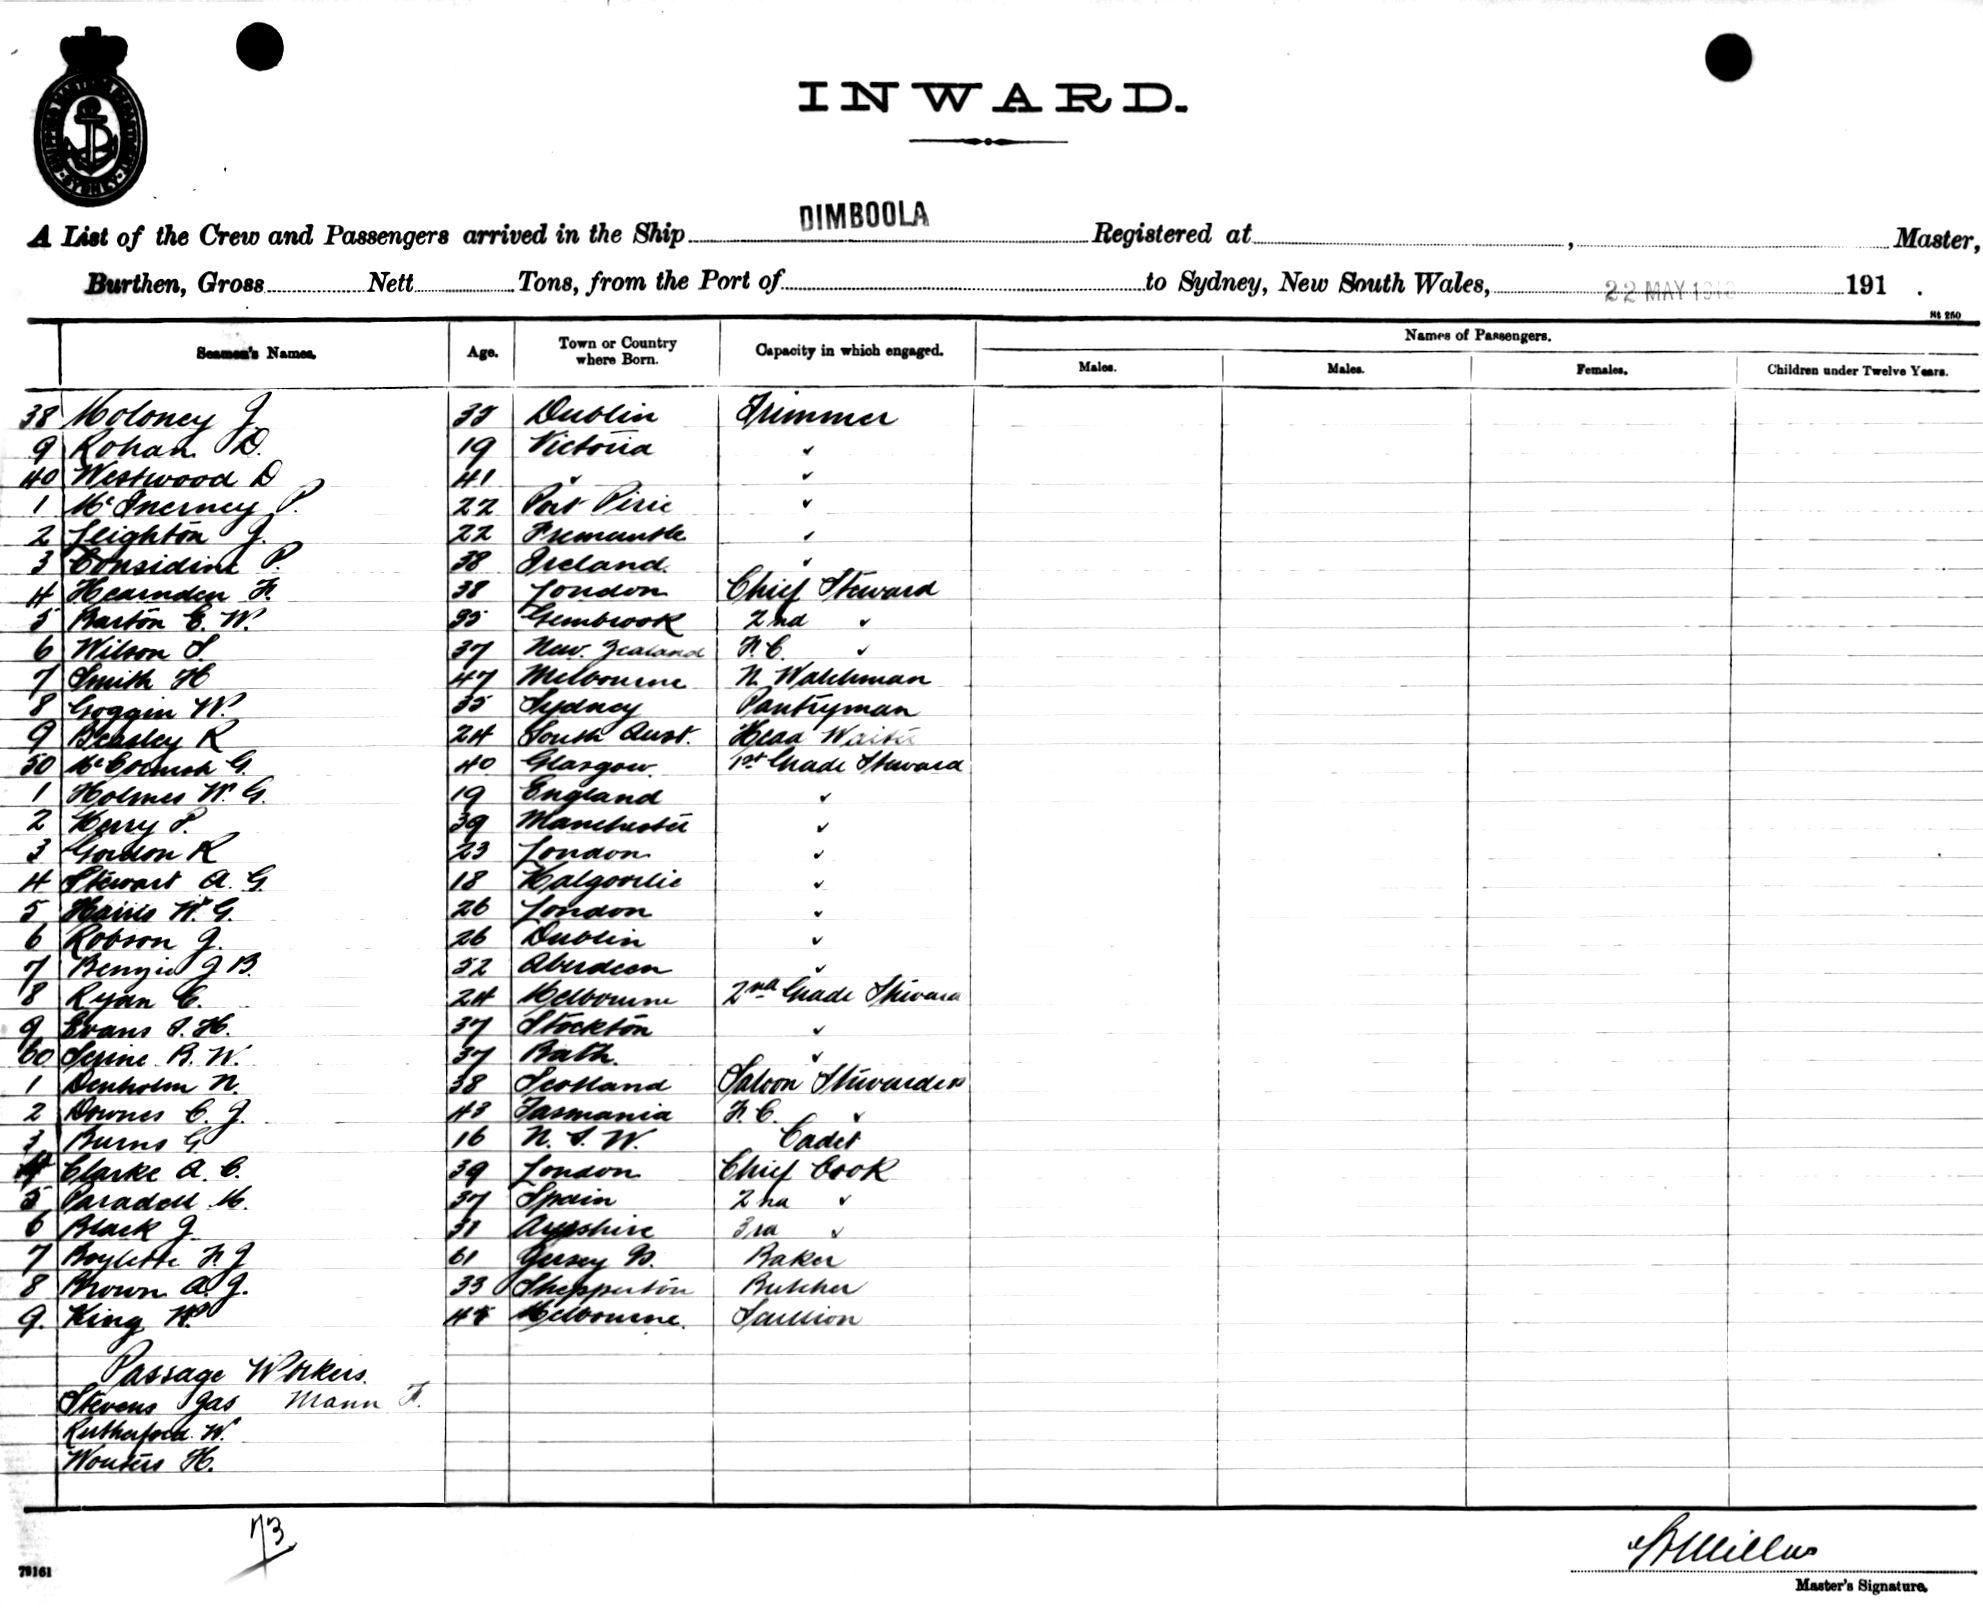 INWARD.
A List of the Crew and Passengers arrived in the Ship DIMBOOLA Registered at , Master,
Burthen, Gross Nett Tons, from the Port of to Sydney, New South Wales, 22 MAY 191 191 .
St 250
Seamen's Names. Age. Town or Country where Born. Capacity in which engaged. Names of Passengers.
Males. Males. Females. Children under Twelve Years.
38 Moloney J. 35 Dublin Trimmer
9 Rohan D. 19 Victoria "
40 Westwood D 41 " "
1 McInerney P. 22 Port Pirie "
2 Leighton J. 22 Fremantle "
3 Considine P. 38 Ireland. "
4 Hearnden F. 38 London Chief Steward
5 Barton E. W. 35 Gembrook 2nd "
6 Wilson S. 37 New. Zealand F. C. "
7 Smith H 47 Melbourne N. Watchman
8 Goggin W. 35 Sydney Pantryman
9 Beasley R 24 South Aust. Head Waiter
50 McCormick G. 40 Glasgow. 1st Grade Steward
1 Holmes W. G. 19 England "
2 Kerry P. 39 Manchester "
3 Gordon R 23 London "
4 Stewart A. G. 18 Kalgoorlie "
5 Harris W. G. 26 London "
6 Robson J. 26 Dublin "
7 Benzie J B. 52 Aberdeen "
8 Ryan C. 24 Melbourne 2nd Grade Steward
9 Evans S. H. 37 Stockton "
60 Serine B. W. 37 Bath. "
1 Denholm N. 38 Scotland Saloon Stewardess
2 Downes C. J. 43 Tasmania F. C. "
3 Burns G 16 N. S. W. Cadet
4 Clarke A. C. 39 London Chief Cook
5 Paradell M. 37 Spain 2nd "
6 Black J. 31 Ayrshire 3rd "
7 Boylette F J 61 Jersey Is. Baker
8 Brown A. J. 33 Shepperton Butcher
9. King W. 45 Melbourne. Scullion
Passage Workers.
Stevens Jas Mann F.
Rutherford. W.
Wouters H.
73
79161
Master's Signature.